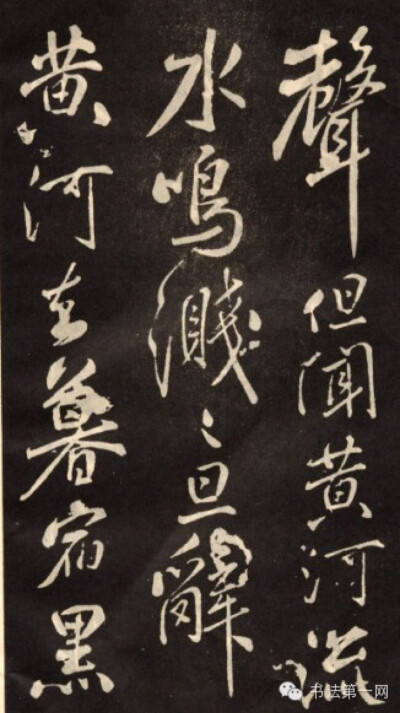 聲但聞黄河流
水鳴濺〻旦辭
黄河去暮宿黑
书法第一网